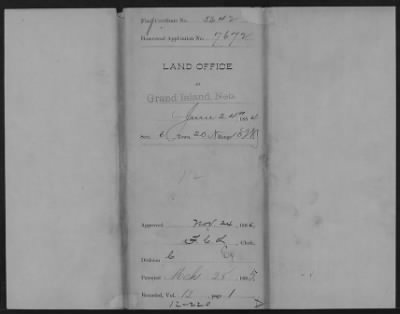 Final Certificate No. 5242
Homestead Application No. 7672
LAND OFFICE
at
Grand Island, Neb.
June 24th 1884
Sec. 6, Town 20 N Range 16 W
12
Approved Nov. 24, 188
F. C. L, Clerk.
Division C
Patented Mch 25 188
Recorded, Vol. 13, page 1
12-220